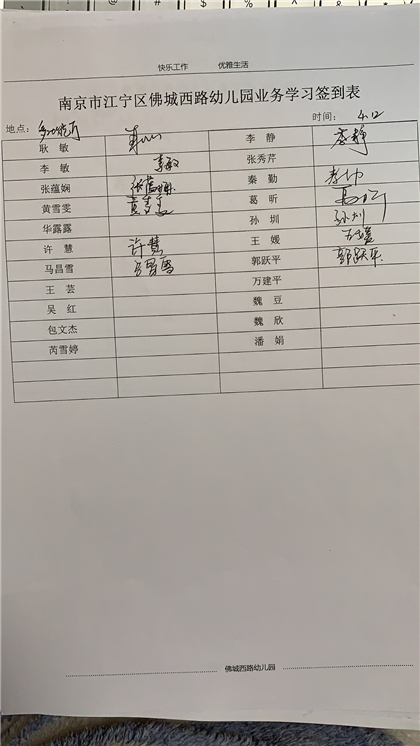 快乐工作 优雅生活
南京市江宁区佛城西路幼儿园业务学习签到表
地点：多功能厅 时间：4.12
耿 敏 李 静 李静
李 敏 李敏 张秀芹
张蕴娴 张蕴娴 秦 勤
黄雪雯 黄雪雯 葛 昕 葛昕
华露露 孙 圳 孙圳
许 慧 许慧 王 媛 王媛
马昌雪 马昌雪 郭跃平 郭跃平
王 芸 万建平
吴 红 魏 豆
包文杰 魏 欣
芮雪婷 潘 娟
佛城西路幼儿园